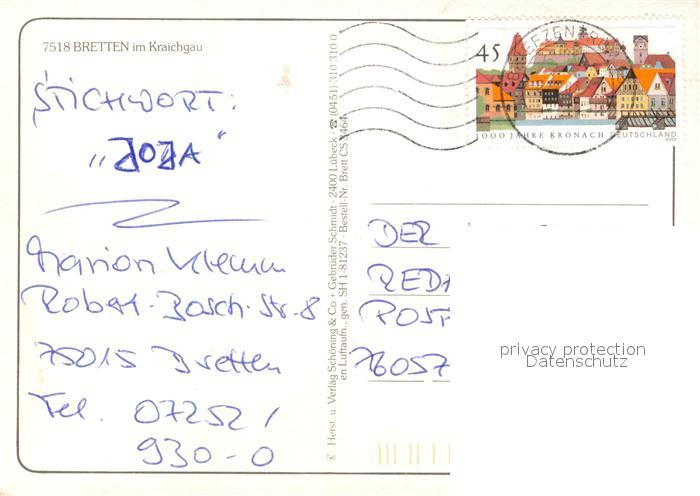 7518 BRETTEN im Kraichgau
STICHWORT:
„JOJA"
Marion Klemm
Robert-Bosch-Str. 8
75015 Bretten
Tel. 07252 /
930-0
Herst. u. Verlag Schöning & Co + Gebrüder Schmidt · 2400 Lübeck ☎ (0451) 310 310 0
en Luftaufn., gen. SH 1-81237 · Bestell-Nr. Brett CS 2464
45
1000 JAHRE KRONACH DEUTSCHLAND
2003
DER
REDA
POST
76057
privacy protection
Datenschutz